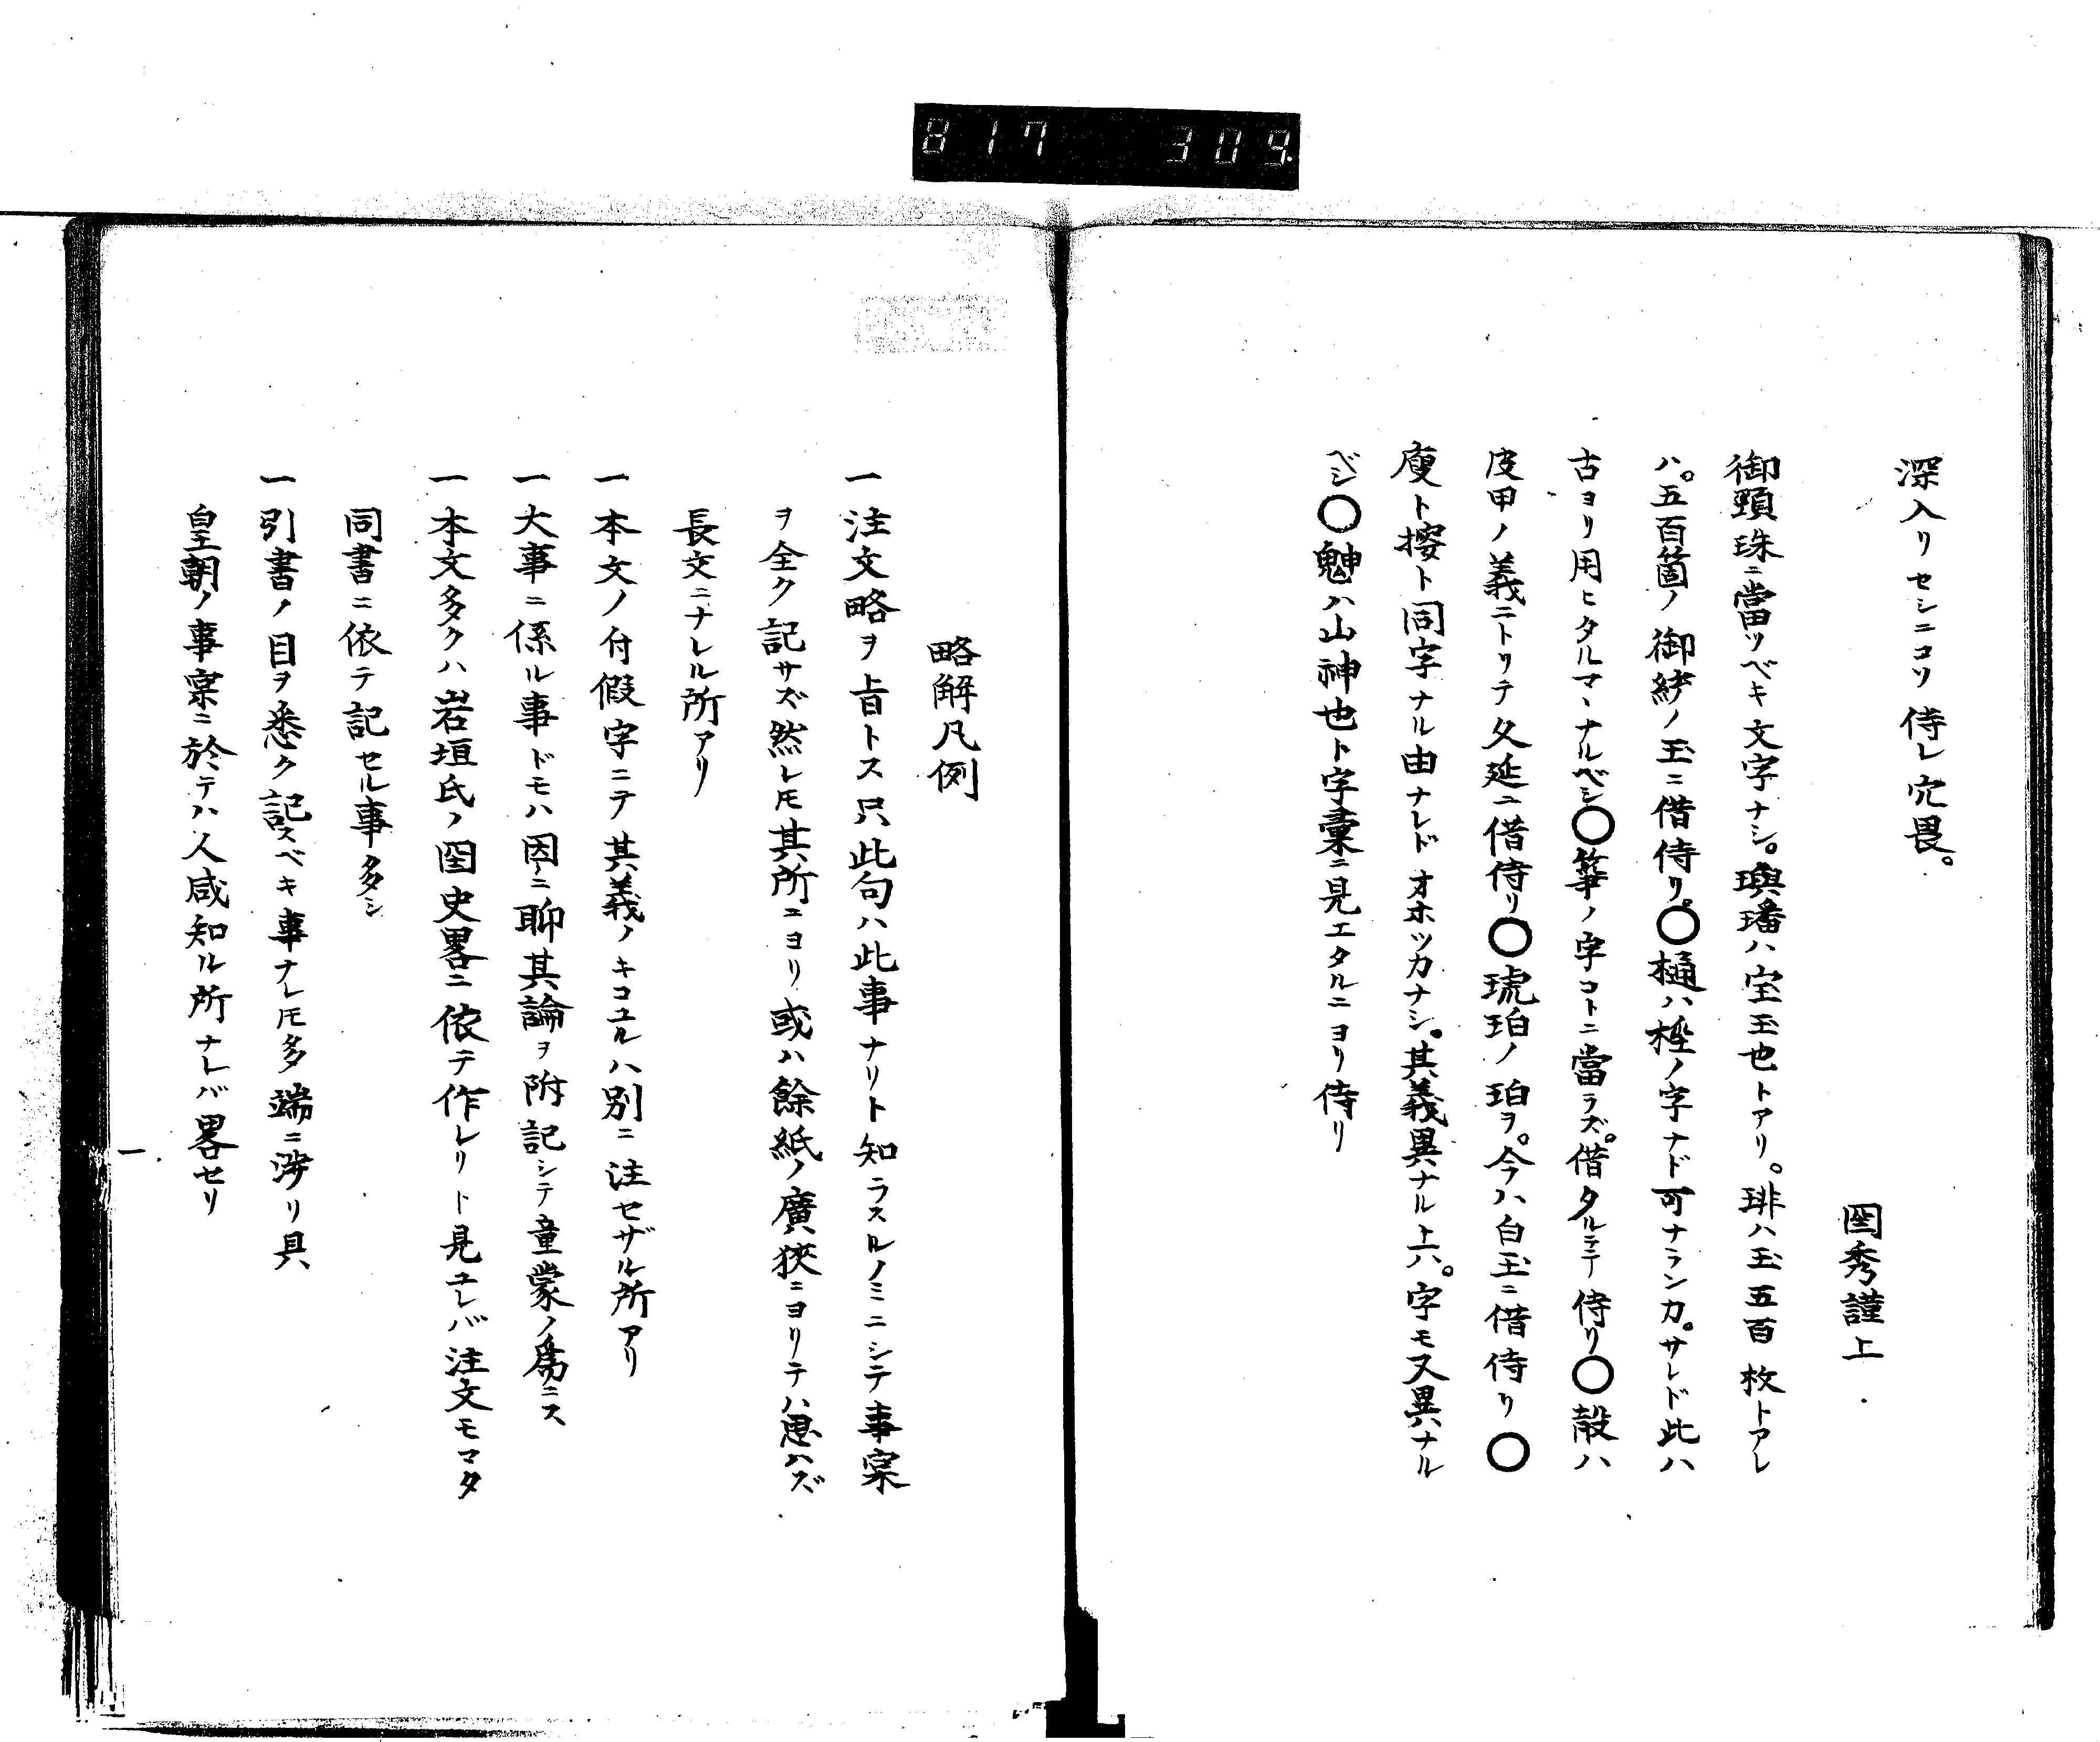 817 309.
深入リセシニコソ侍レ穴畏。
圀秀謹上
御頸珠ニ當ツベキ文字ナシ。璵璠ハ宝玉也トアリ。琲ハ玉五百枚トアレ
ハ。五百箇ノ御緒ノ玉ニ借侍リ。〇樋ハ楻ノ字ナド可ナランカ。サレド此ハ
古ヨリ用ヒタルマヽナルベシ〇箏ノ字コトニ當ラズ。借タルニテ侍リ〇殻ハ
皮甲ノ義ニトリテ久延ニ借侍リ〇琥珀ノ珀ヲ。今ハ白玉ニ借侍リ〇
廋ト按ト同字ナル由ナレドオホツカナシ。其義異ナル上ハ。字モ又異ハナル
ベシ〇魋ハ山神也ト字彙ニ見エタルニヨリ侍リ
略解凡例
一注文略ヲ旨トス只此句ハ此事ナリト知ラスルノミニシテ事実
ヲ全ク記サズ然レ𪜈其所ニヨリ或ハ餘紙ノ廣狹ニヨリテハ思ハズ
長文ニナレル所アリ
一本文ノ付假字ニテ其義ノキコユルハ別ニ注セザル所アリ
一大事ニ係ル事ドモハ因ニ聊其論ヲ附記シテ童蒙ノ爲ニス
一本文多クハ岩垣氏ノ圀史畧ニ依テ作レリト見ユレバ注文モマタ
同書ニ依テ記セル事多シ
一引書ノ目ヲ悉ク記スベキ事ナレ𪜈多端ニ渉リ具
皇朝ノ事実ニ於テハ人咸知ル所ナレバ畧セリ
一